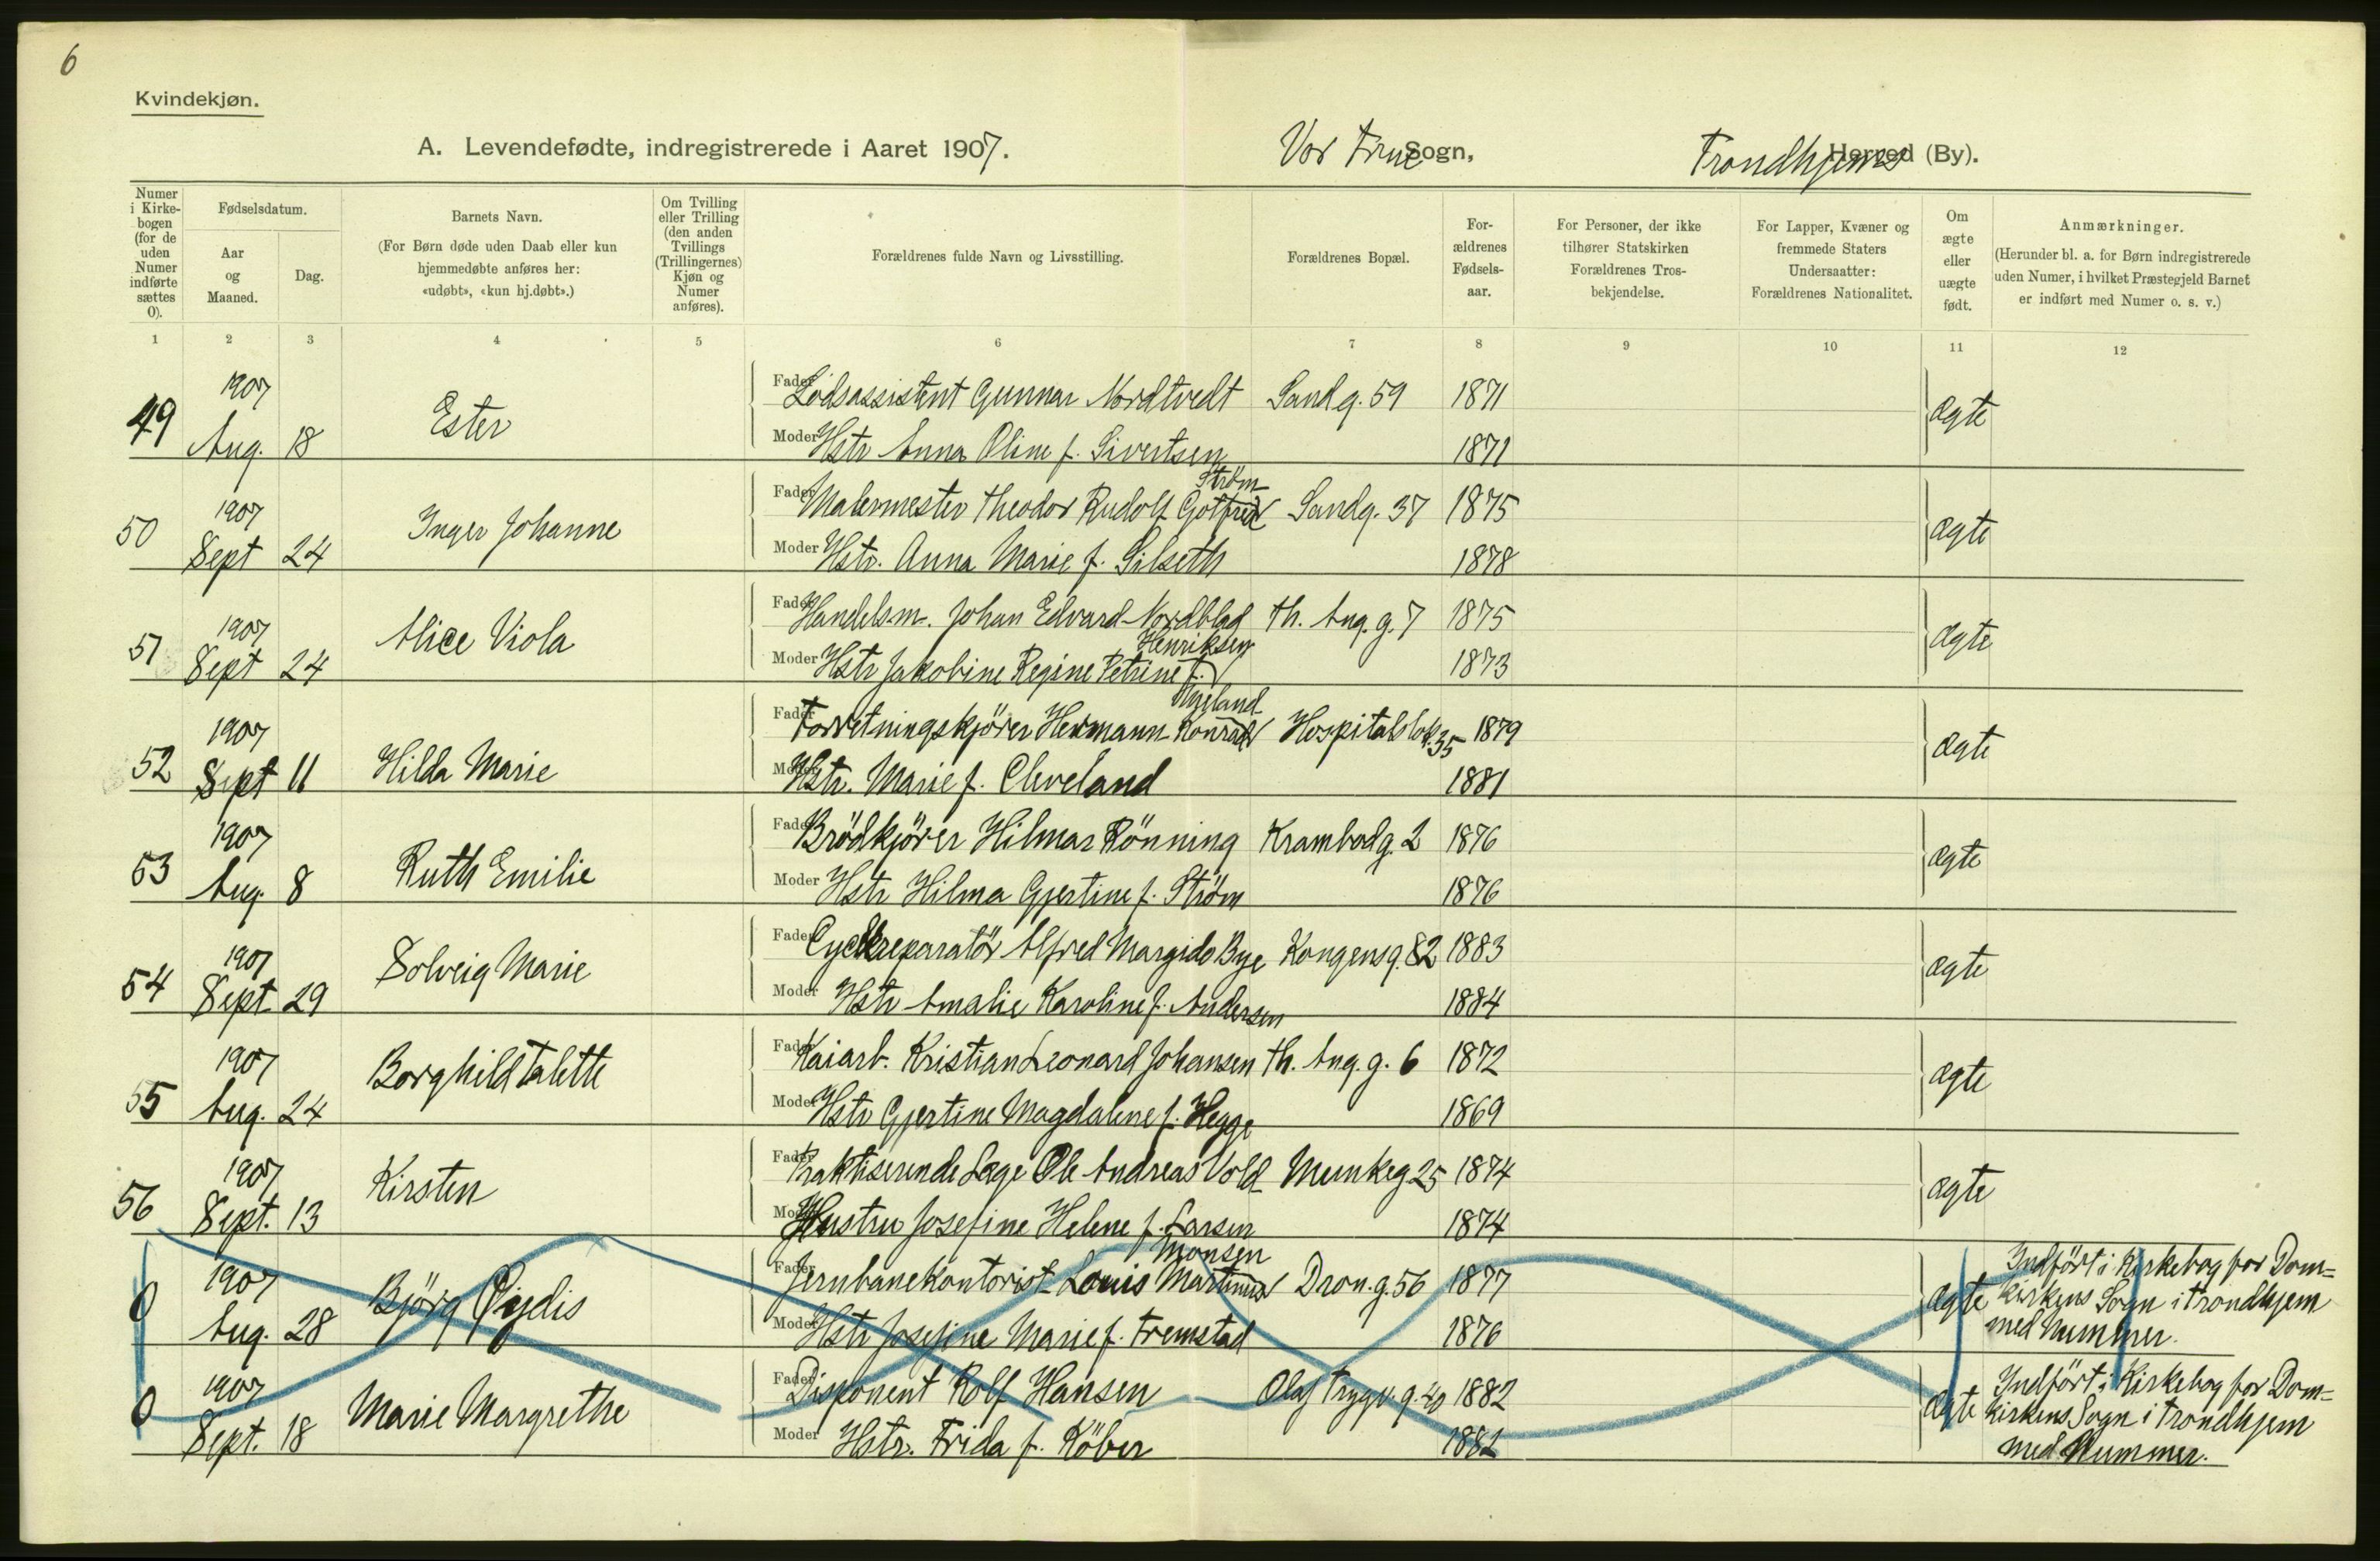 6
Kvindekjøn.
A. Levendefødte, indregistrerede i Aaret 1907. Vor Frue Sogn, Trondhjems Herred (By).
Numer i Kirkebogen (for de uden Numer indførte sættes 0).
Fødselsdatum.
Aar og Maaned.
Dag.
Barnets Navn.
(For Børn døde uden Daab eller kun hjemmedøbte anføres her: «udøbt», «kun hj.døbt».)
Om Tvilling eller Trilling (den anden Tvillings (Trillingernes) Kjøn og Numer anføres).
Forældrenes fulde Navn og Livsstilling.
Forældrenes Bopæl.
Forældrenes Fødselsaar.
For Personer, der ikke tilhører Statskirken Forældrenes Trosbekjendelse.
For Lapper, Kvæner og fremmede Staters Undersaatter: Forældrenes Nationalitet.
Om ægte eller uægte født.
Anmærkninger.
(Herunder bl. a. for Børn indregistrerede uden Numer, i hvilket Præstegjeld Barnet er indført med Numer o. s. v.)
1 2 3 4 5 6 7 8 9 10 11 12
49 1907 Aug. 18 Ester
Fader Lodsassistent Gunnar Nordtvedt Sandg. 59 1871 ægte
Moder Hstr Anna Oline f. Sivertsen 1871
50 1907 Sept 24 Inger Johanne
Fader Malermester Theodor Rudolf Gotfred Strøm Sandg. 37 1875 ægte
Moder Hstr. Anna Marie f. Silseth 1878
51 1907 Sept 24 Alice Viola
Fader Handelsm. Johan Edvard Nordblad Th. Ang. g. 7 1875 ægte
Moder Hstr Jakobine Regine Petrine f. Henriksen 1873
52 1907 Sept 11 Hilda Marie
Fader Forretningskjörer Hermann Konrad Hospitalslök. 35 1879 ægte
Moder Hstr. Marie f. Cleveland 1881
53 1907 Aug. 8 Ruth Emilie
Fader Brödkjörer Hilmar Rönning Krambodg. 2 1876 ægte
Moder Hstr Hilma Gjertine f. Ström 1876
54 1907 Sept 29 Solveig Marie
Fader Cyclereparatör Alfred Margido Bye Kongensg. 82 1883 ægte
Moder Hstr Amalie Karoline f. Andersen 1884
55 1907 Aug. 24 Borghild Talette
Fader Kaiarb. Kristian Leonard Johansen Th. Ang. g. 6 1872 ægte
Moder Hstr Gjertine Magdalene f. Hegge 1869
56 1907 Sept. 13 Kirsten
Fader Praktiserende Læge Ole Andreas Vold Munkeg 25 1874 ægte
Moder Hustru Josefine Helene f. Larsen 1874
0 1907 Aug. 28 Björg Öydis
Fader Jernbanekontorist Louis Martinus Monsen Dron. g. 56 1877 ægte
Moder Hstr Josefine Marie f. Tremstad 1876
Indført i Kirkebog for Dom=
kirkens Sogn i Trondhjem
med Nummer.
0 1907 Sept. 18 Marie Margrethe
Fader Disponent Rolf Hansen Olaf Trygv. g. 40 1882 ægte
Moder Hstr. Frida f. Köber 1882
Indført i Kirkebog for Dom=
kirkens Sogn i Trondhjem
med Nummer.